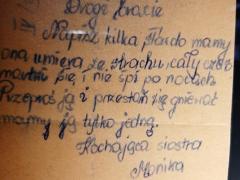 Drogi bracie
Napisz kilka słów do mamy
ona umiera ze strachu cały czas
martwi się i nie śpi po nocach
Przeproś ją i przestań się gniewać
mamy ją tylko jedną.
Kochająca siostra
Monika